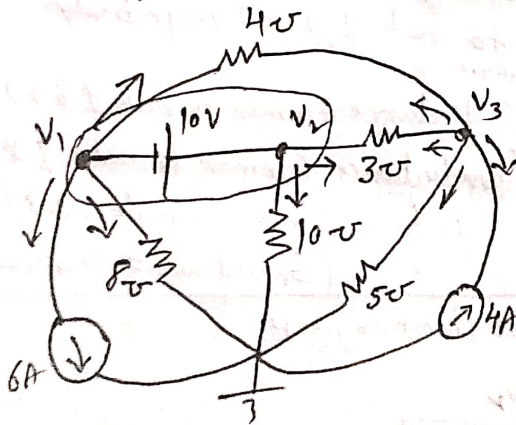 4℧
V₁
10V
V₂
V₃
3℧
10℧
8℧
5℧
6A
4A
3